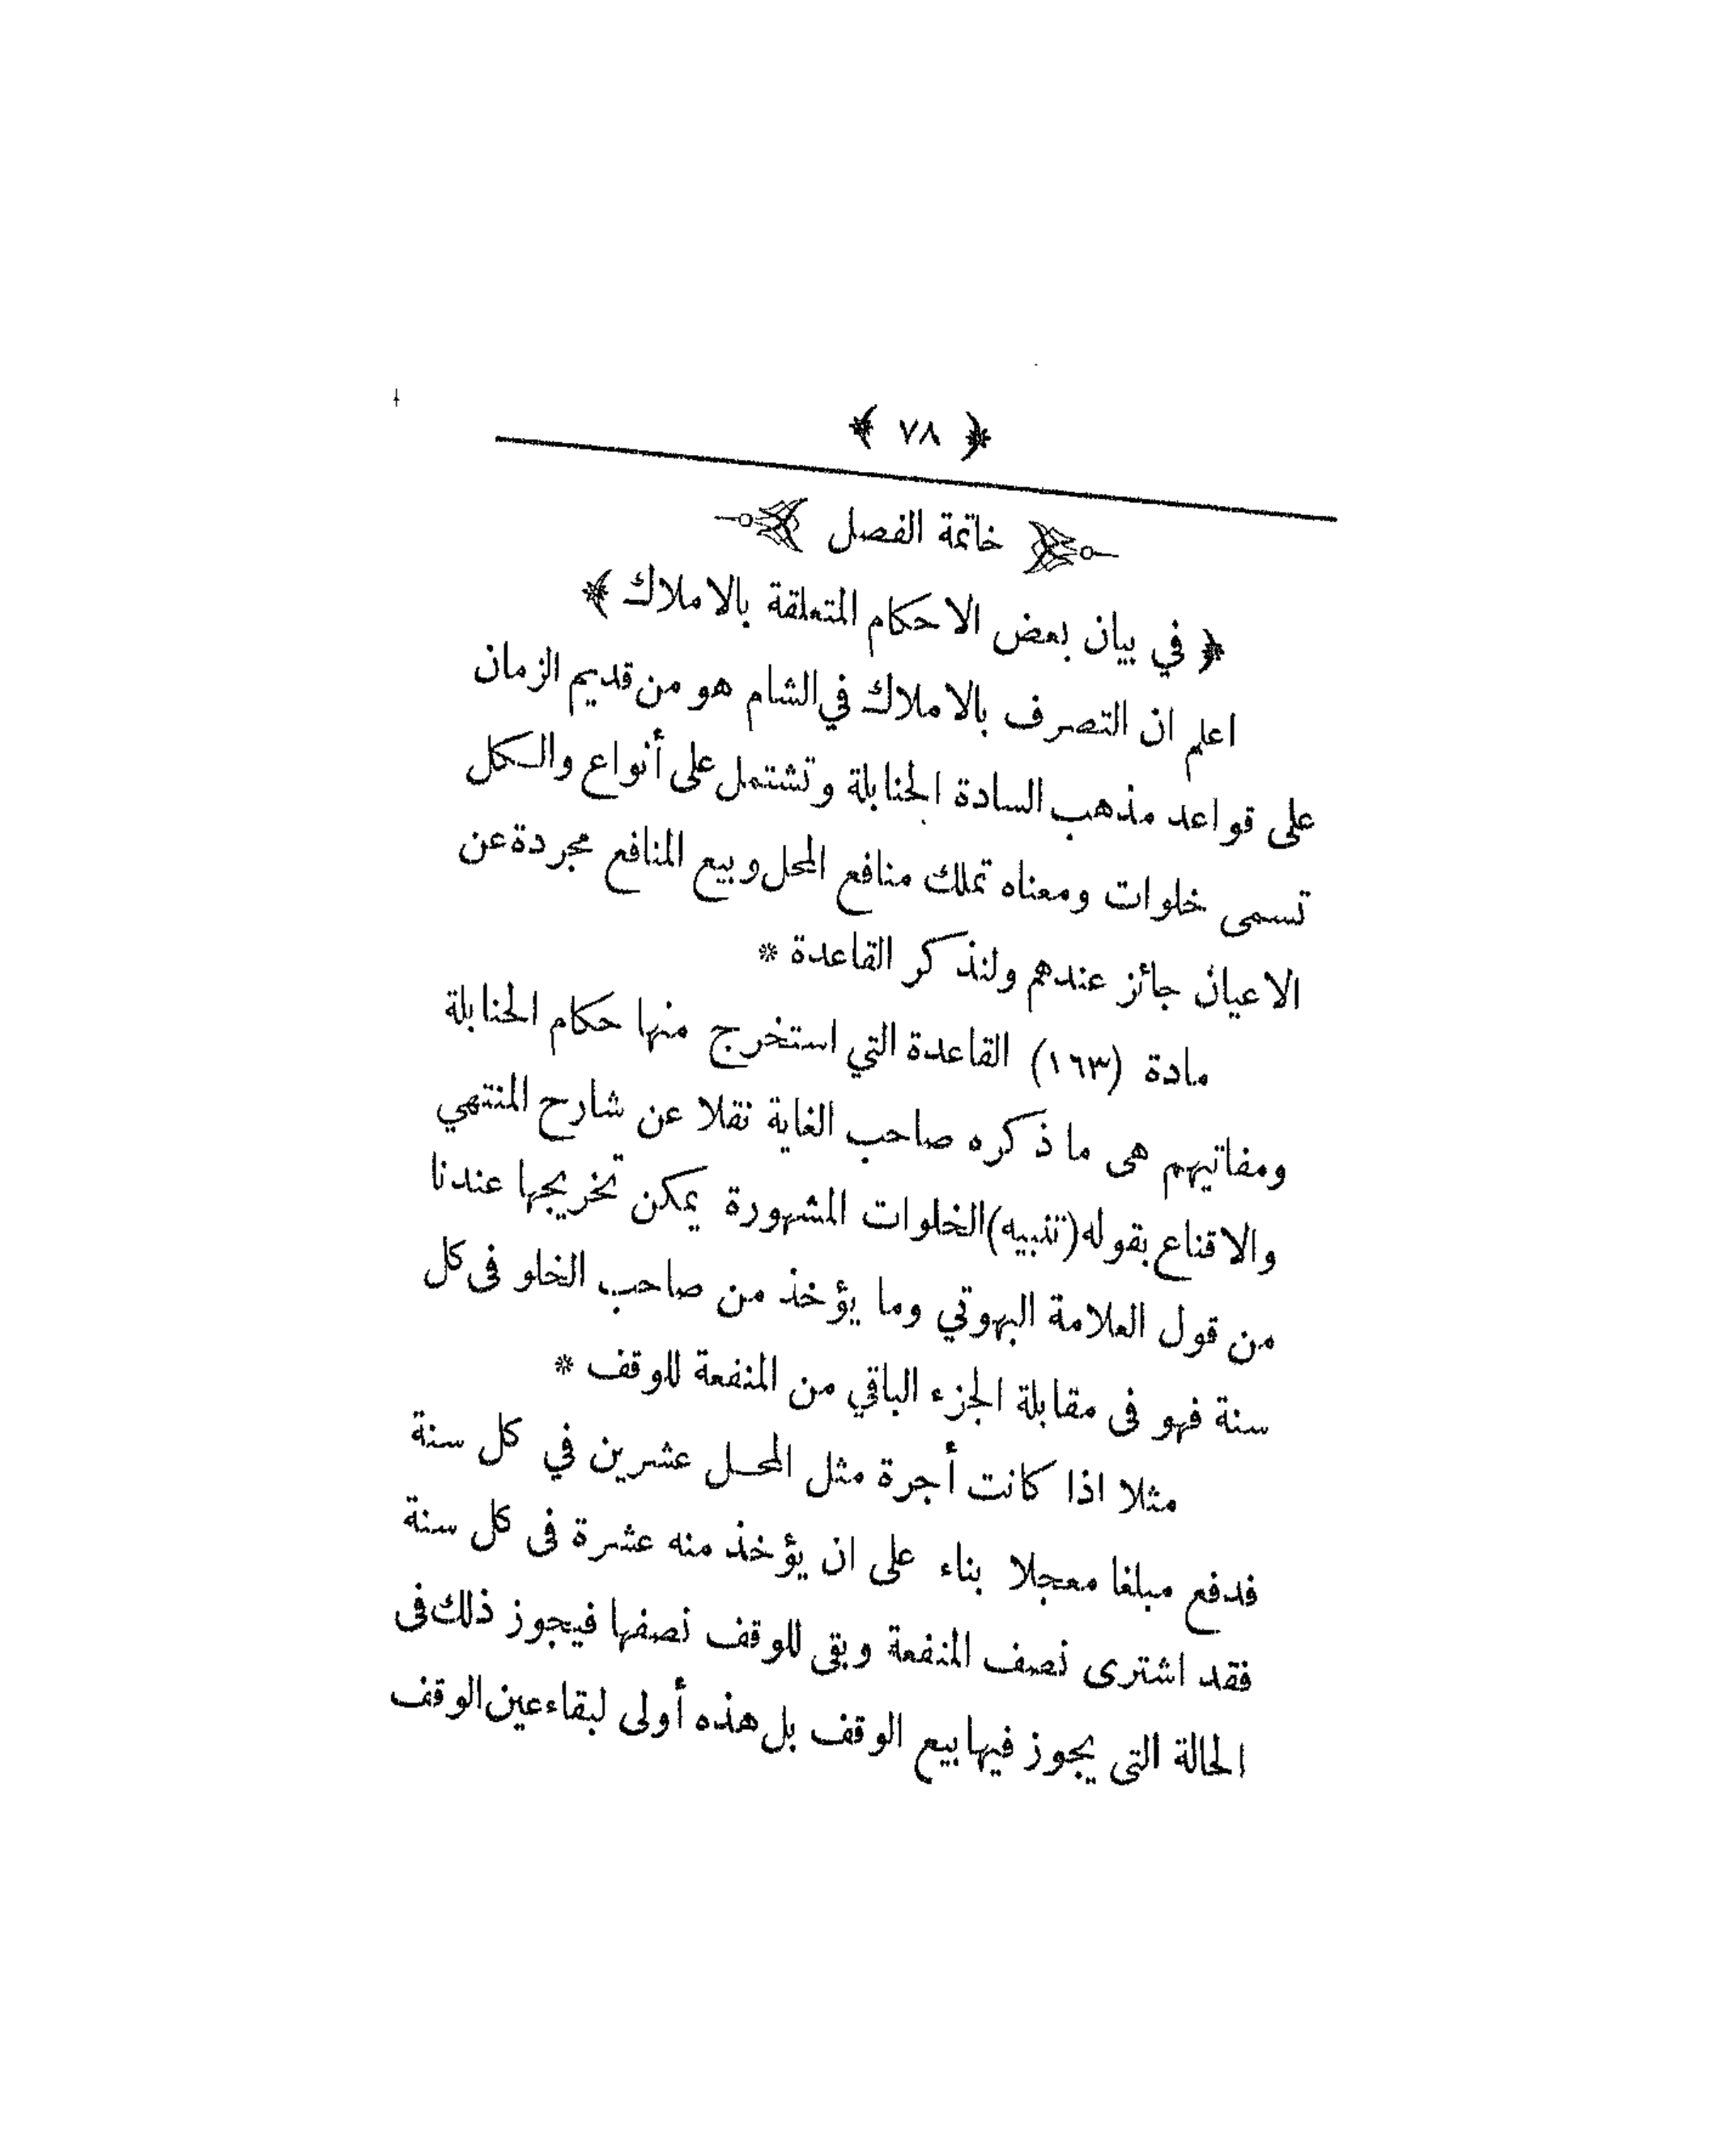 ﴿ ٧٨ ﴾
خاتمة الفصل
﴿ في بيان بعض الاحكام المتعلقة بالاملاك ﴾
اعلم ان التصرف بالاملاك في الشام هو من قديم الزمان
على قواعد مذهب السادة الحنابلة وتشتمل على أنواع والكل
تسمى خلوات ومعناه تملك منافع المحل وبيع المنافع مجردة عن
الاعيان جائز عندهم ولنذكر القاعدة *
مادة (١٦٣) القاعدة التي استخرج منها حكام الحنابلة
ومفاتيهم هى ما ذكره صاحب الغاية نقلا عن شارح المنتهي
والاقناع بقوله (تنبيه) الخلوات المشهورة يمكن تخريجها عندنا
من قول العلامة البهوتي وما يؤخذ من صاحب الخلو فى كل
سنة فهو فى مقابلة الجزء الباقي من المنفعة للوقف *
مثلا اذا كانت أجرة مثل المحل عشرين في كل سنة
فدفع مبلغا معجلا بناء على ان يؤخذ منه عشرة فى كل سنة
فقد اشترى نصف المنفعة وبقى للوقف نصفها فيجوز ذلك فى
الحالة التى يجوز فيها بيع الوقف بل هذه أولى لبقاء عين الوقف